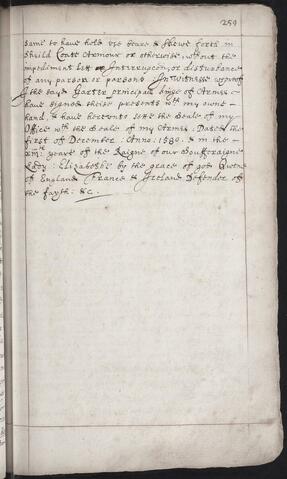 259
same to have hold use beare & shewe forth in
Shield Coate Armour or otherwise, wthout the
impediment lett or Interrupcon, or disturbance
of any parson or parsons In Witnesse wherof
I the said Garter principale kinge of Armes
have signed these presents wth my owne
hand, & have hereunto sette the Seale of my
Office wth the Seale of my Armes, Dated the
first of December: Anno: 1580. & in the
yeare of the Raigne of our Souferaigne
Lady Elizabethe by the grace of god Quene
of England France & Ireland Defender of
the fayth: &c.